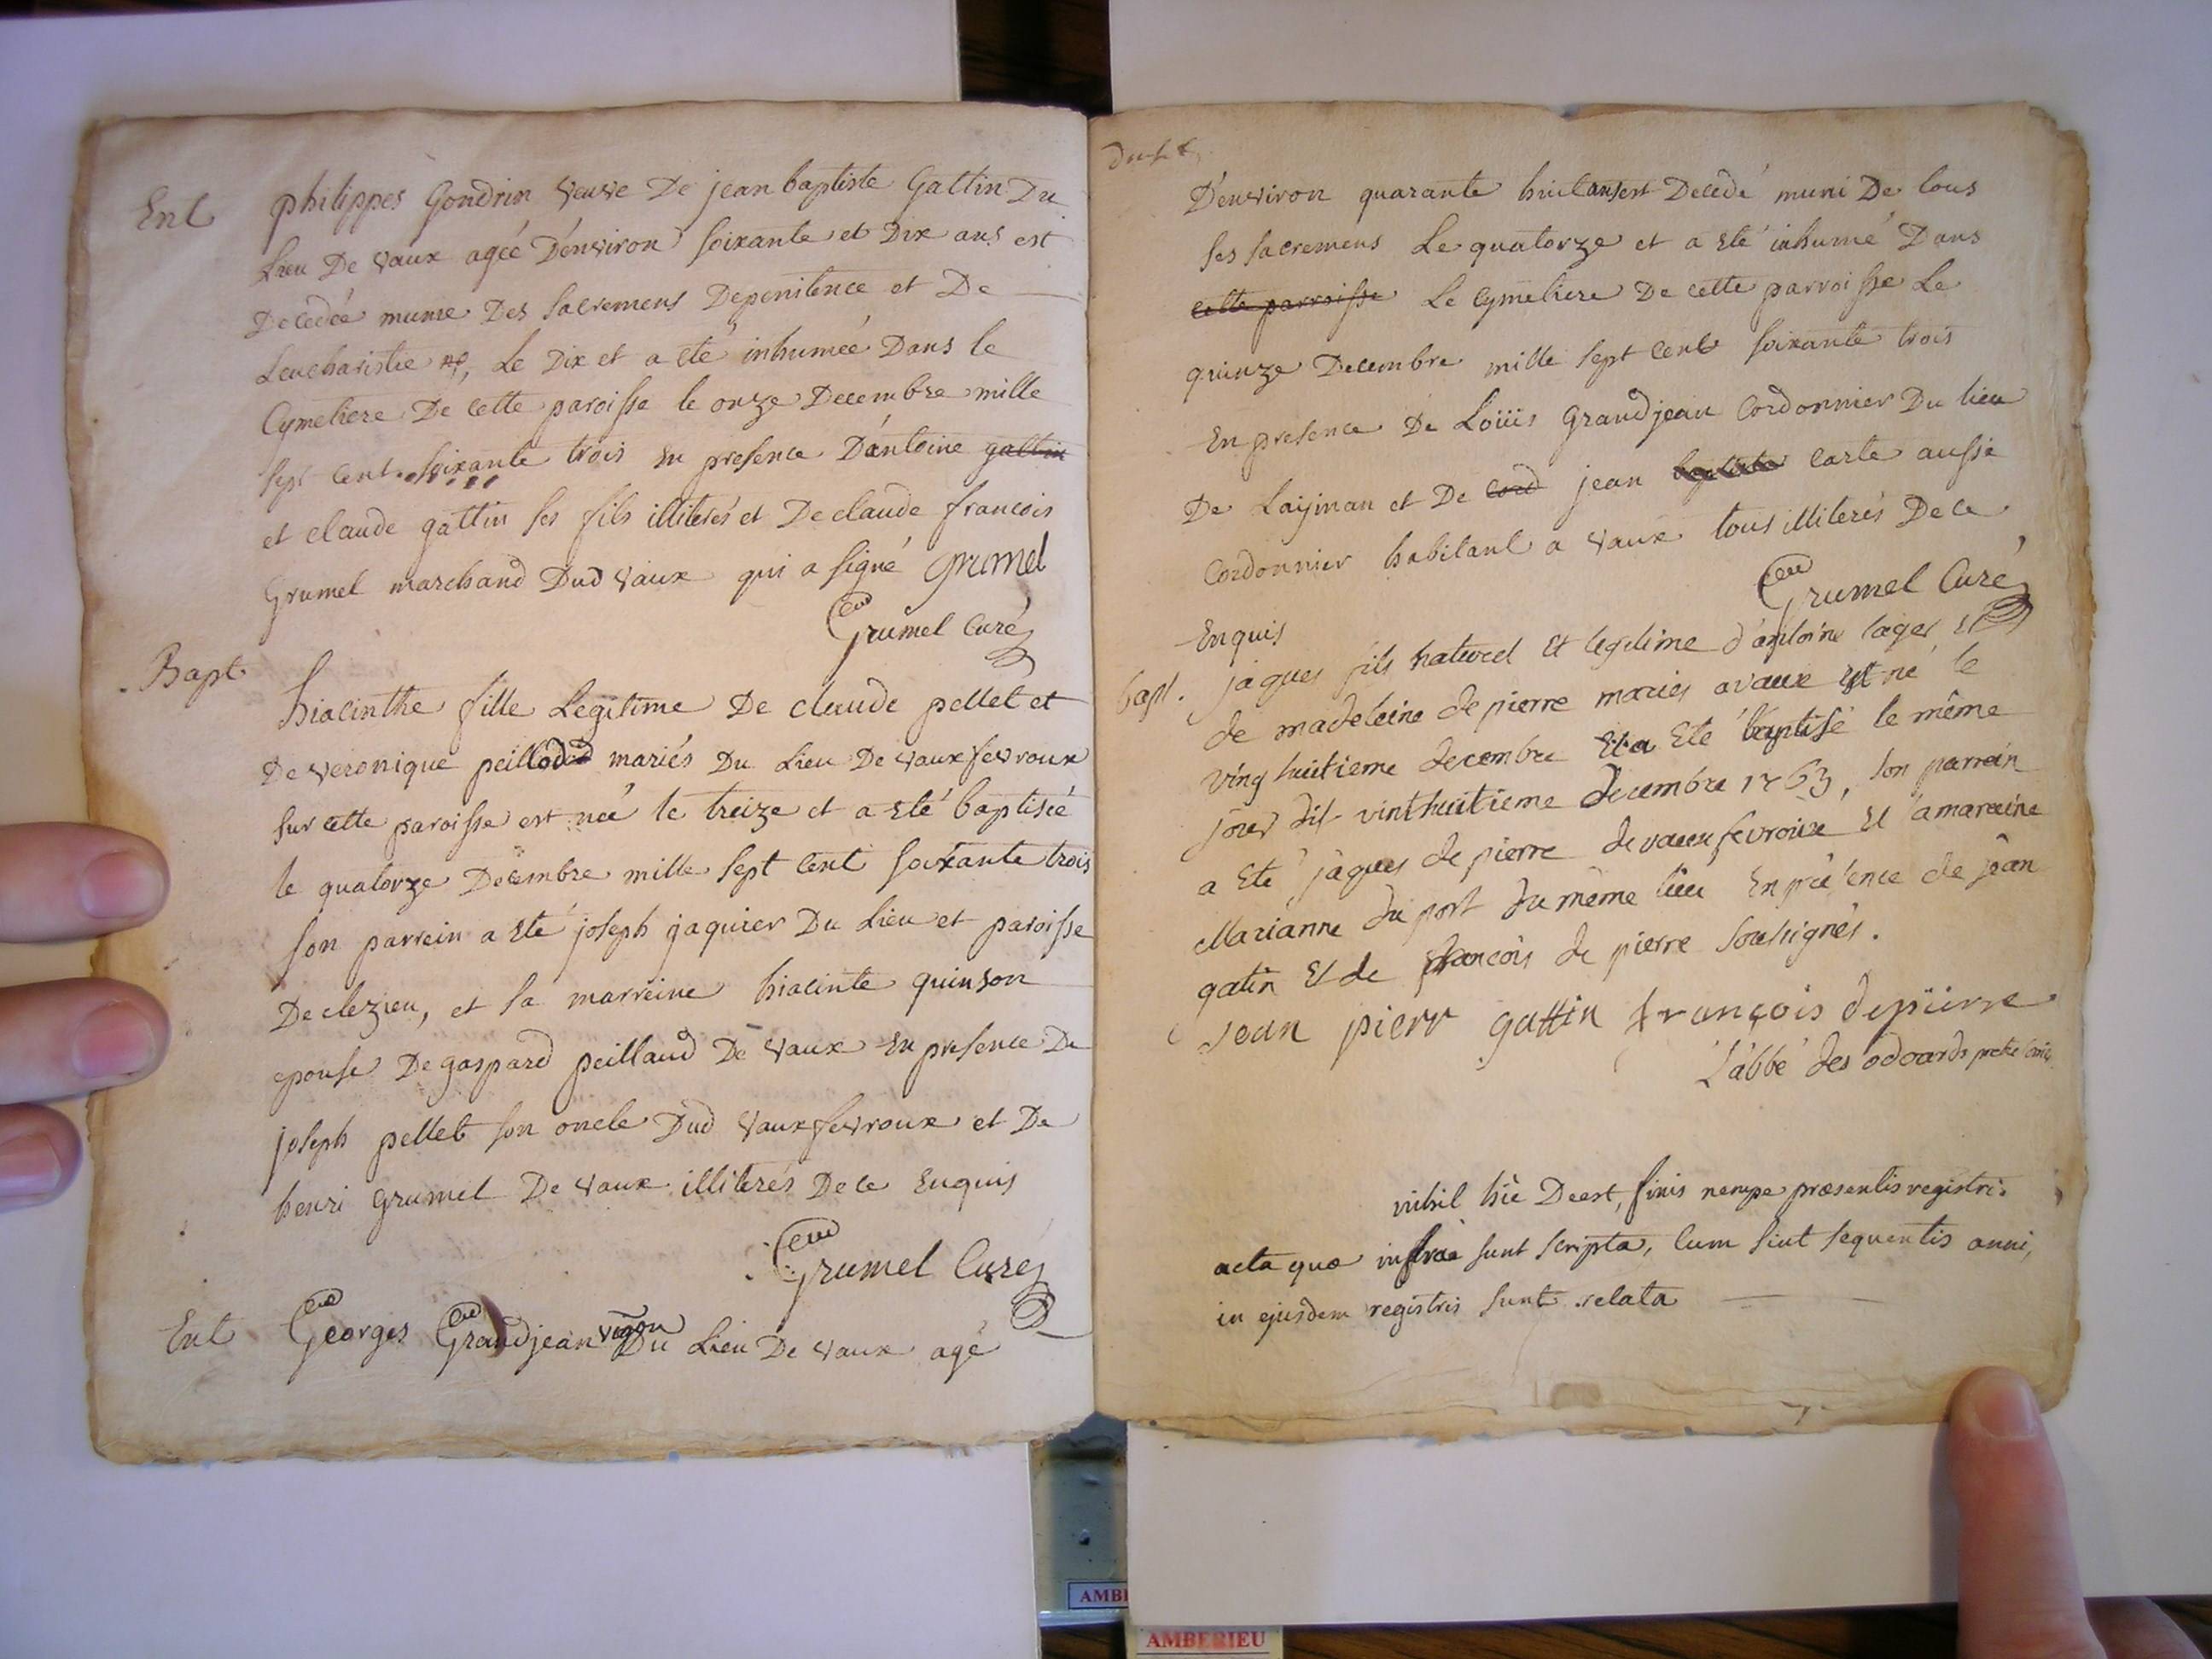 Ent
philippes Gondrin veuve De jean baptiste Gattin Du
Lieu De vaux agéé D'environ soixante et Dix ans est
Decedéé munie Des sacremens Depenitence et De
Leucharistie Le Dix et a été inhuméé Dans le
Cymetiere De cette paroisse le onze Decembre mille
sept cent soixante trois en presence D'antoine gattin
et claude gattin ses fils illiterés et De claude francois
Grumel marchand Dud vaux qui a signé Grumel
Grumel Curé
Bapt
hiacinthe fille Legitime De claude pellet et
De veronique peillod mariés Du Lieu De vaux fevroux
sur cette paroisse est néé le treize et a eté baptiséé
le quatorze Decembre mille sept cent soixante trois
son parrein a eté joseph jaquier Du Lieu et paroisse
De clezieu, et sa marreine hiacinte quinson
epouse De gaspard peillaud De vaux En presence De
joseph pellet son oncle Dud vaux fevroux et De
henri Grumel De vaux illiterés De ce Enquis
Grumel Curé
Ent
Georges Grandjean vigon Du Lieu De vaux agé
D'environ quarante huit ans est Decedé muni De tous
ses sacremens Le quatorze et a eté inhumé Dans
cette parroisse Le Cymetiere De cette parroisse Le
quinze Decembre mille sept cent soixante trois
En presence De Loüis Grandjean Cordonnier Du lieu
De Laijman et De cord jean baptiste carte aussi
Cordonnier habitant a vaux tous illiterés De ce
Enquis
Grumel Curé
bapt. jaques fils naturel et legitime d'antoine lager et
de madeleine de pierre mariés a vaux est né le
ving huitieme decembre et a Eté baptisé le même
jour dit vint huitieme decembre 1763, son parrein
a Eté jaques de pierre de vaux fevroux et la mareine
Marianne du port du même lieu En présence de jean
gatin Et de francois de pierre soussignés.
jean pierr gattin françois depiierre
L'abbé des odoards
nihil hic Deest, finis nempe præsentis registri:
acta quæ infra sunt scripta, Cum sint sequentis anni,
in ejusdem registris sunt relata
AMBERIEU